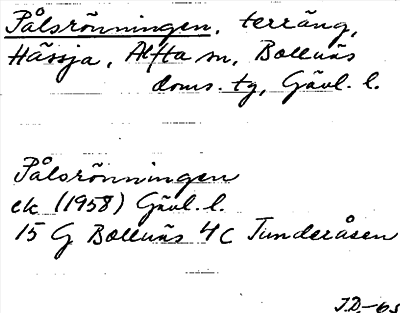 Pålsrönningen, terräng,
Hässja, Alfta sn, Bollnäs
doms. tg, Gävl. l.
Pålsrönningen
ek (1958) Gävl. l.
15 G Bollnäs 4c Tunderåsen
J.D.-65